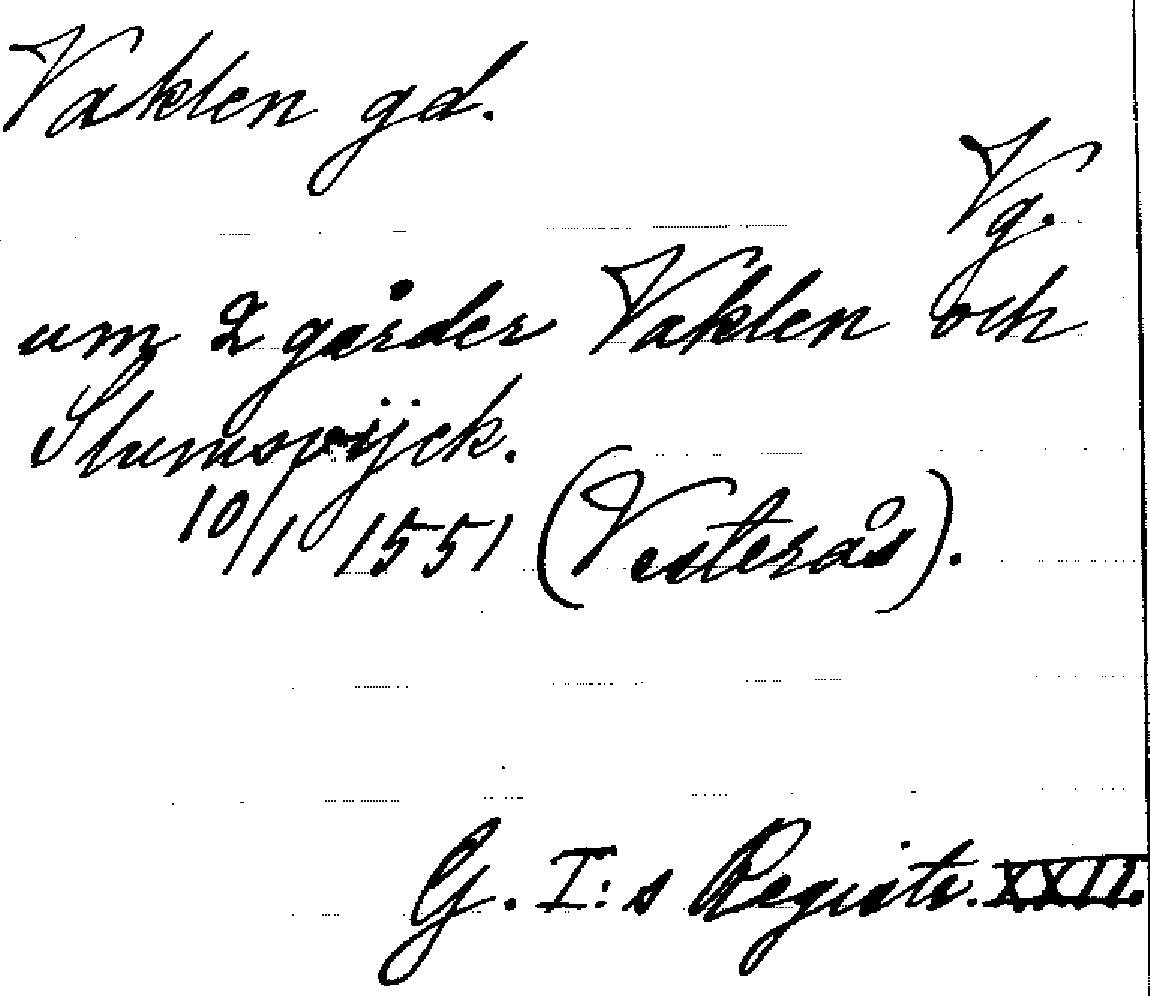 Vaklen gd.
Vg.
um 2 gårder Vaklen och
Slumspijck.
10/1 1551 (Vesterås).
G. I:s Registr. XXII.